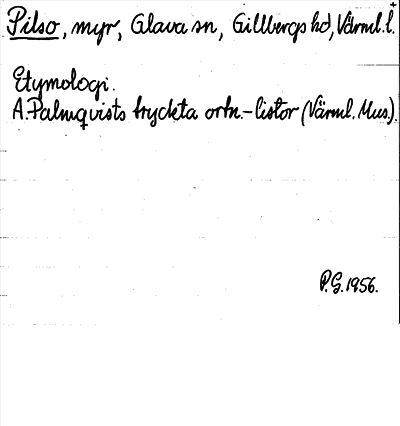 Pilso, myr, Glava sn, Gillbergs hd, Värml. l.
Etymologi.
A. Palmqvists tryckta ortn.-listor (Värml. Mus.).
P.G. 1956.